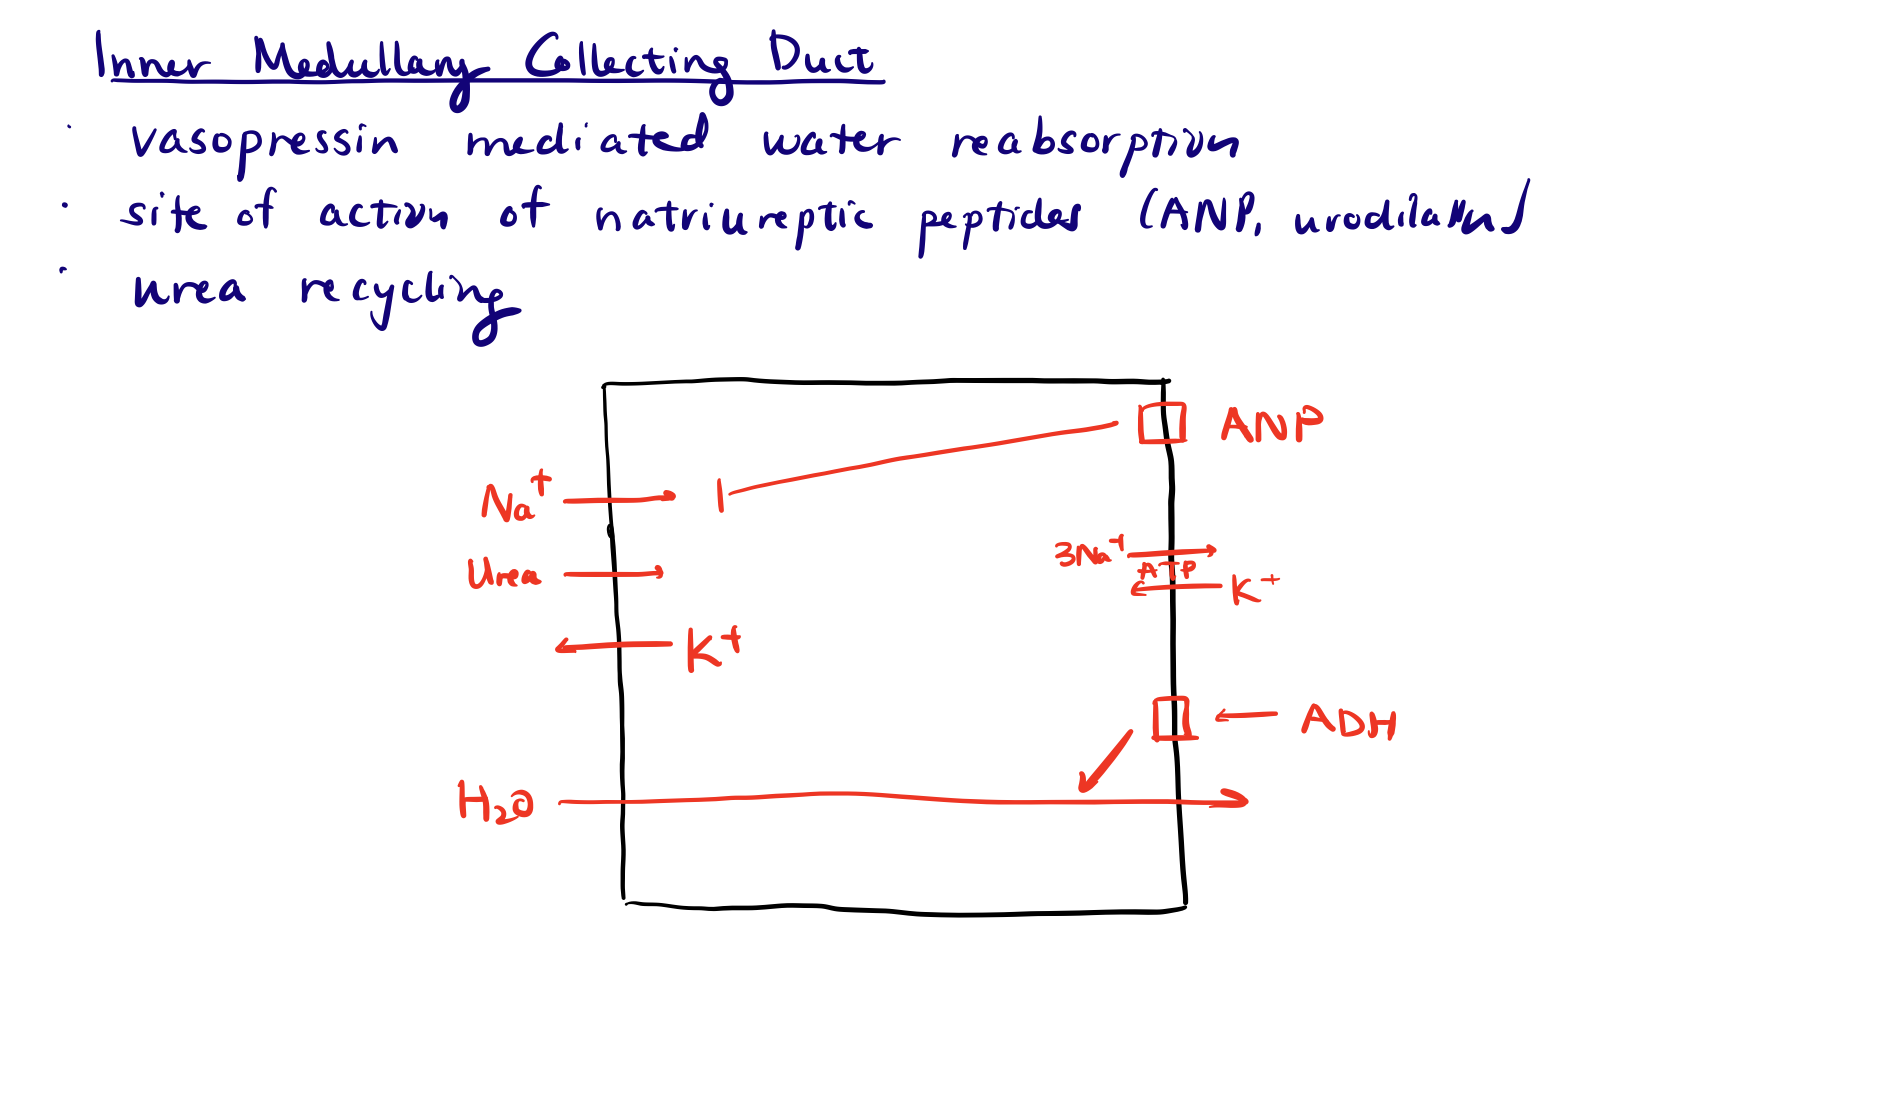 Inner Medullary Collecting Duct
· vasopressin mediated water reabsorption
· site of action of natriureptic peptides (ANP, urodilatin)
· urea recycling
ANP
Na⁺
3Na⁺
ATP
Urea
K⁺
K⁺
ADH
H₂O